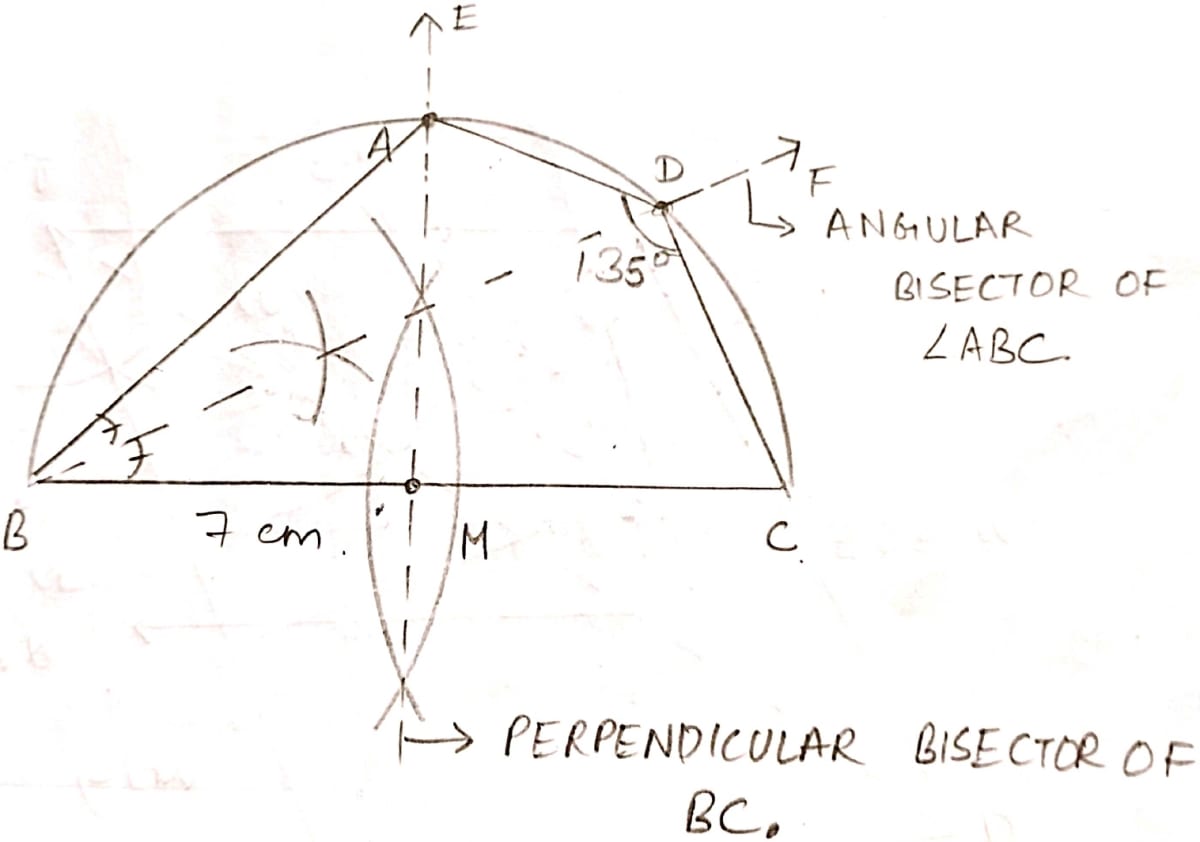 E
A
D
F
ANGULAR
BISECTOR OF
∠ABC.
135°
B
7 cm.
M
C.
PERPENDICULAR BISECTOR OF
BC.